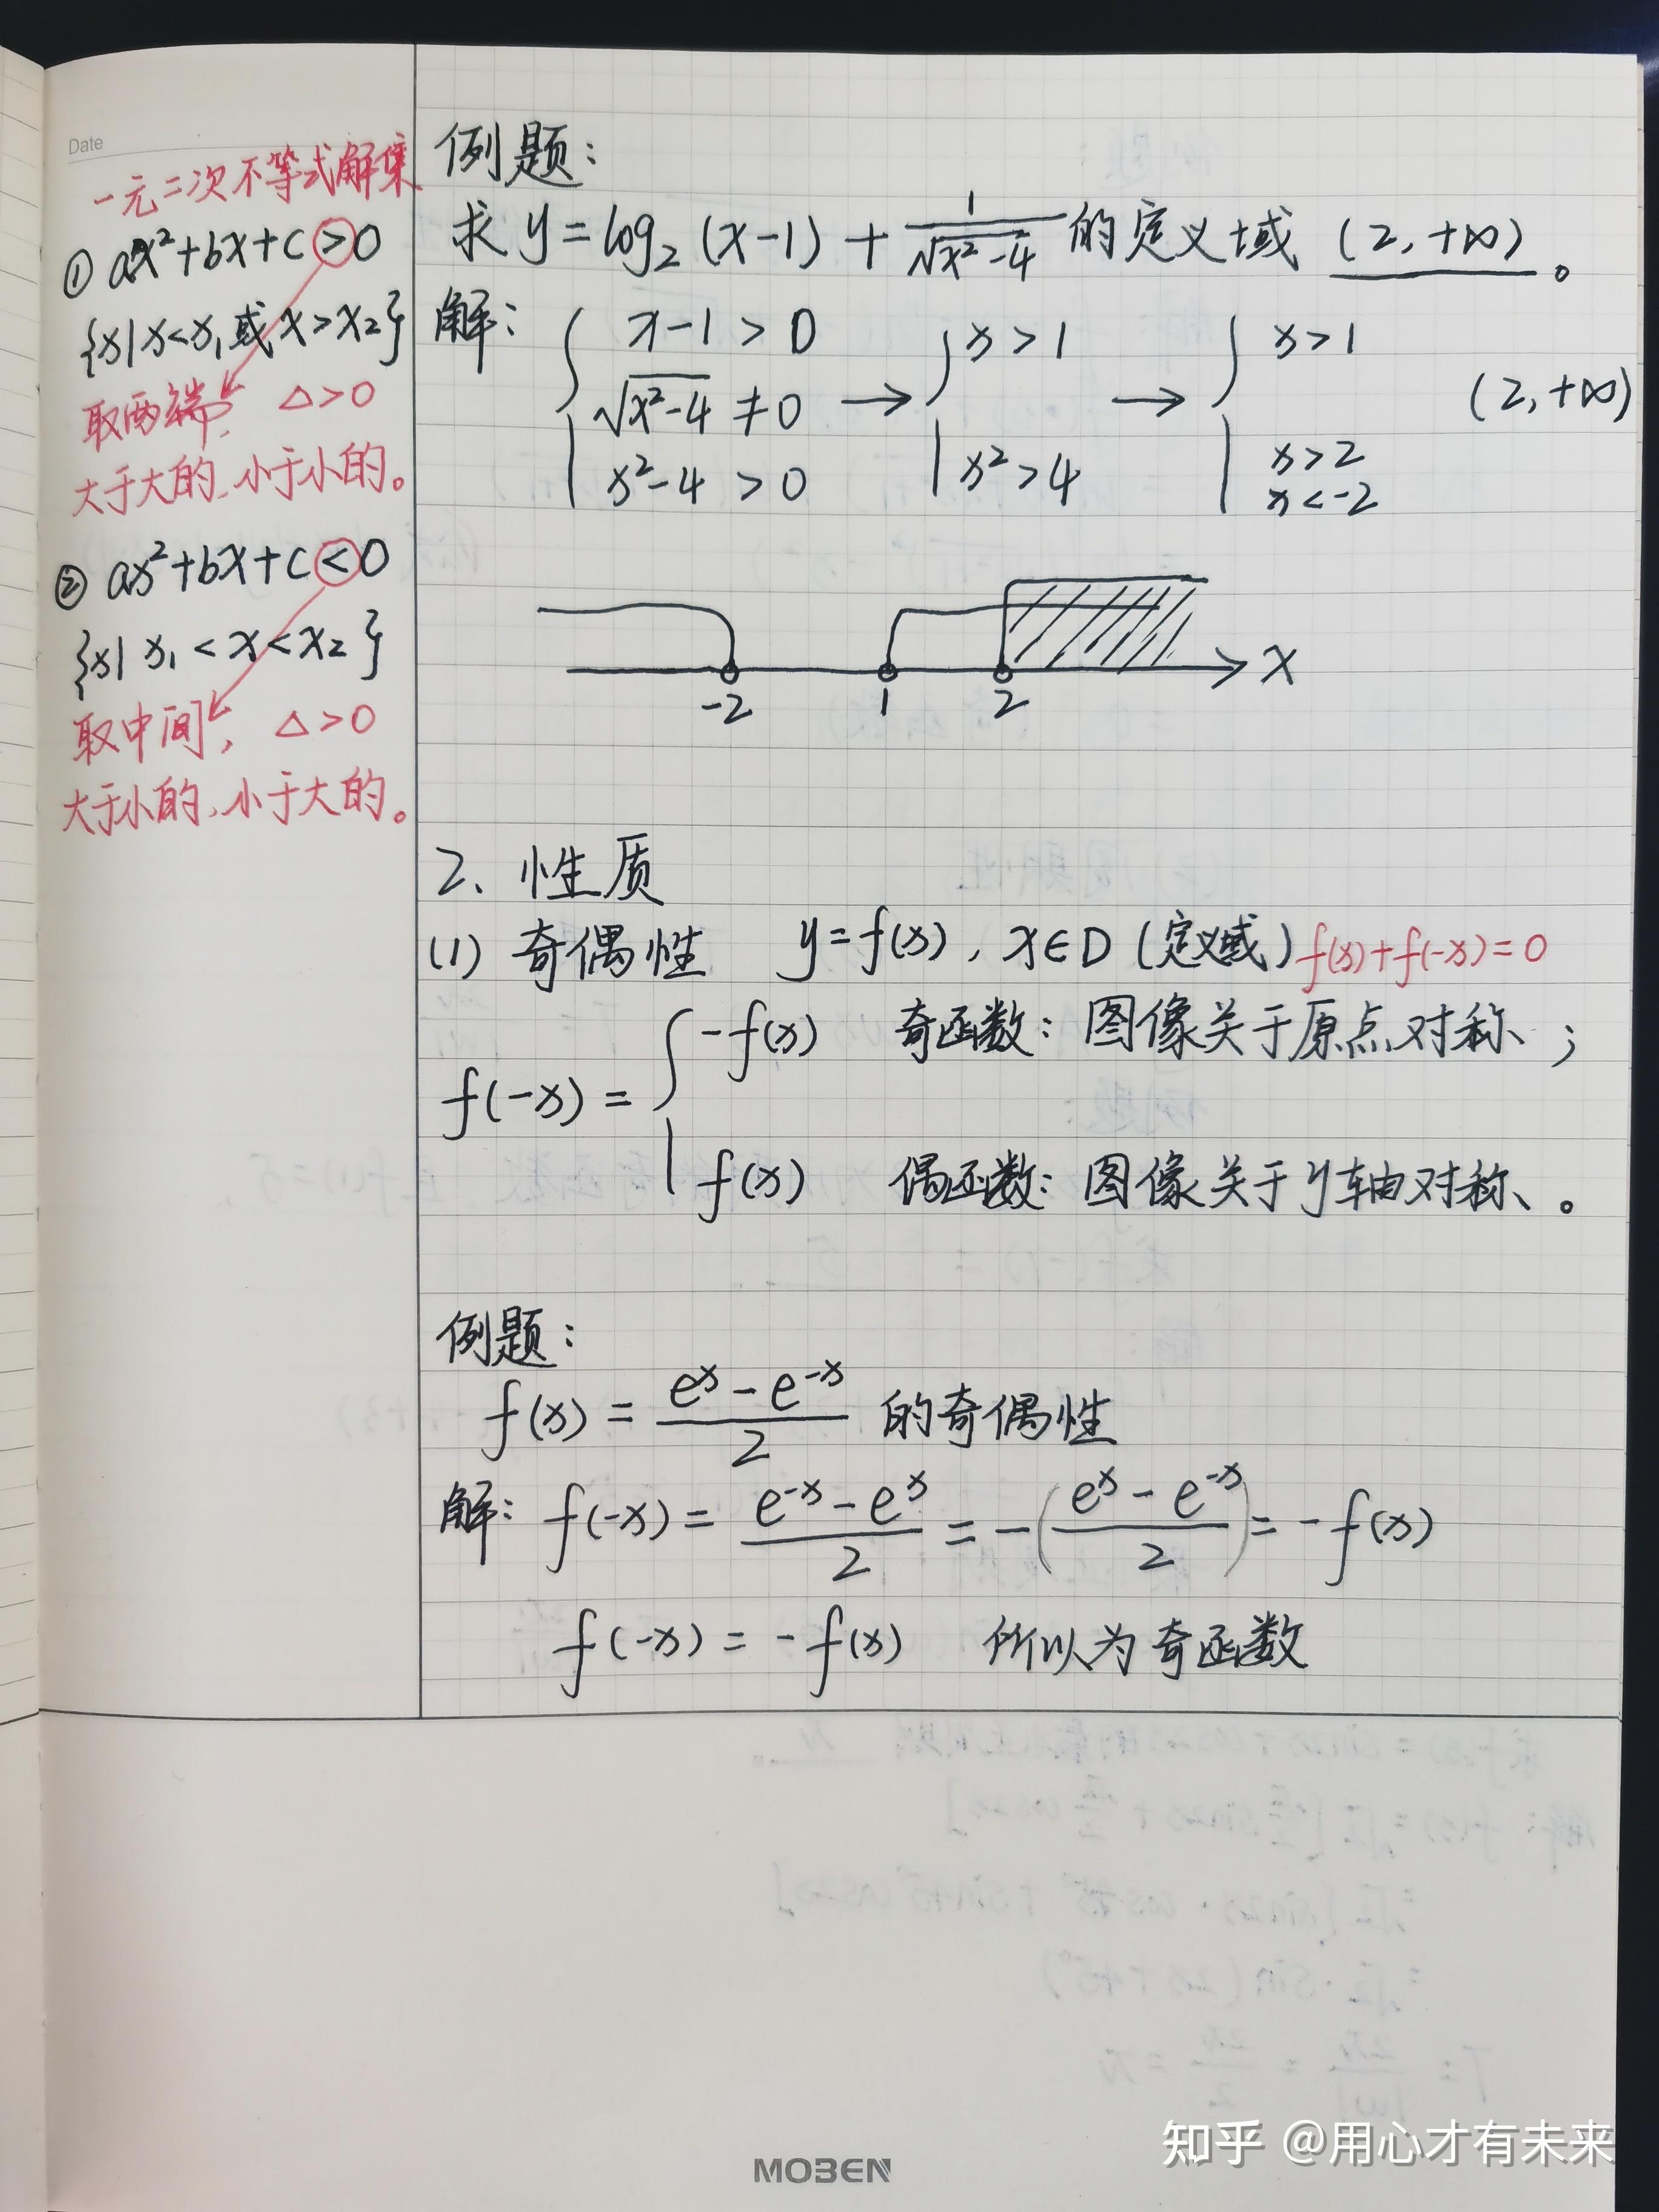 Date
一元二次不等式解集
① ax²+bx+c>0
{x|x<x₁或x>x₂}
取两端, △>0
大于大的,小于小的。
② ax²+bx+c<0
{x|x₁<x<x₂}
取中间, △>0
大于小的,小于大的。
例题:
求 y=log₂(x-1)+1/√(x²-4) 的定义域 (2,+∞)。
解: { x-1>0 → { x>1 → { x>1
√(x²-4)≠0 (2,+∞)
x²-4>0 x²>4 x>2
x<-2
-2 1 2 x
2、性质
(1) 奇偶性 y=f(x), x∈D(定义域) f(x)+f(-x)=0
f(-x)= { -f(x) 奇函数:图像关于原点对称;
f(x) 偶函数:图像关于y轴对称。
例题:
f(x)=(eˣ-e⁻ˣ)/2 的奇偶性
解: f(-x)=(e⁻ˣ-eˣ)/2=-((eˣ-e⁻ˣ)/2)=-f(x)
f(-x)=-f(x) 所以为奇函数
知乎 @用心才有未来
MOBEN